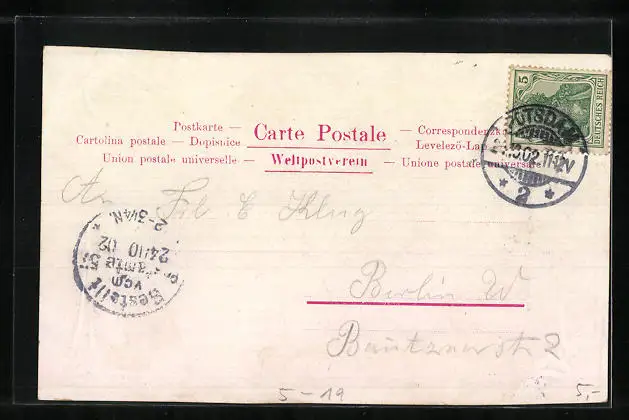 Postkarte —
Cartolina postale — Dopisnice
Union postale universelle —
Carte Postale
Weltpostverein
— Correspondenzka
— Levelező-La
— Unione postale universale
5
DEUTSCHES REICH
POTSDAM
24.10.02.11-12V
* 2 *
An Frl. E Klug
Berlin W
Bautznerstr 2
Bestellt
vom
Postamte
24/10 02
2-3¼N.
5-19
5,-